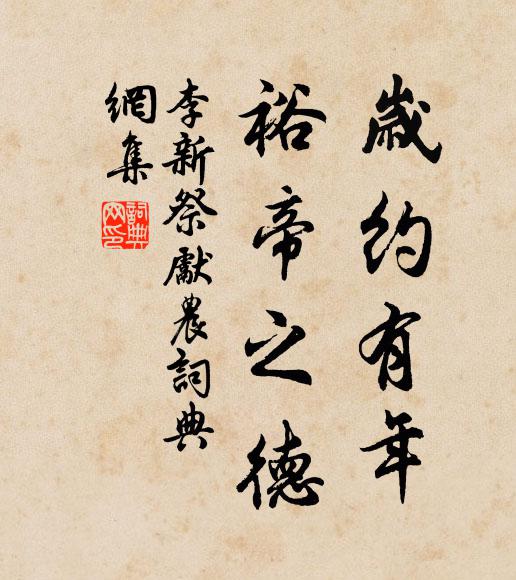 歲約有年
裕帝之德
李新祭獻農詞典
網集
詞典
网印